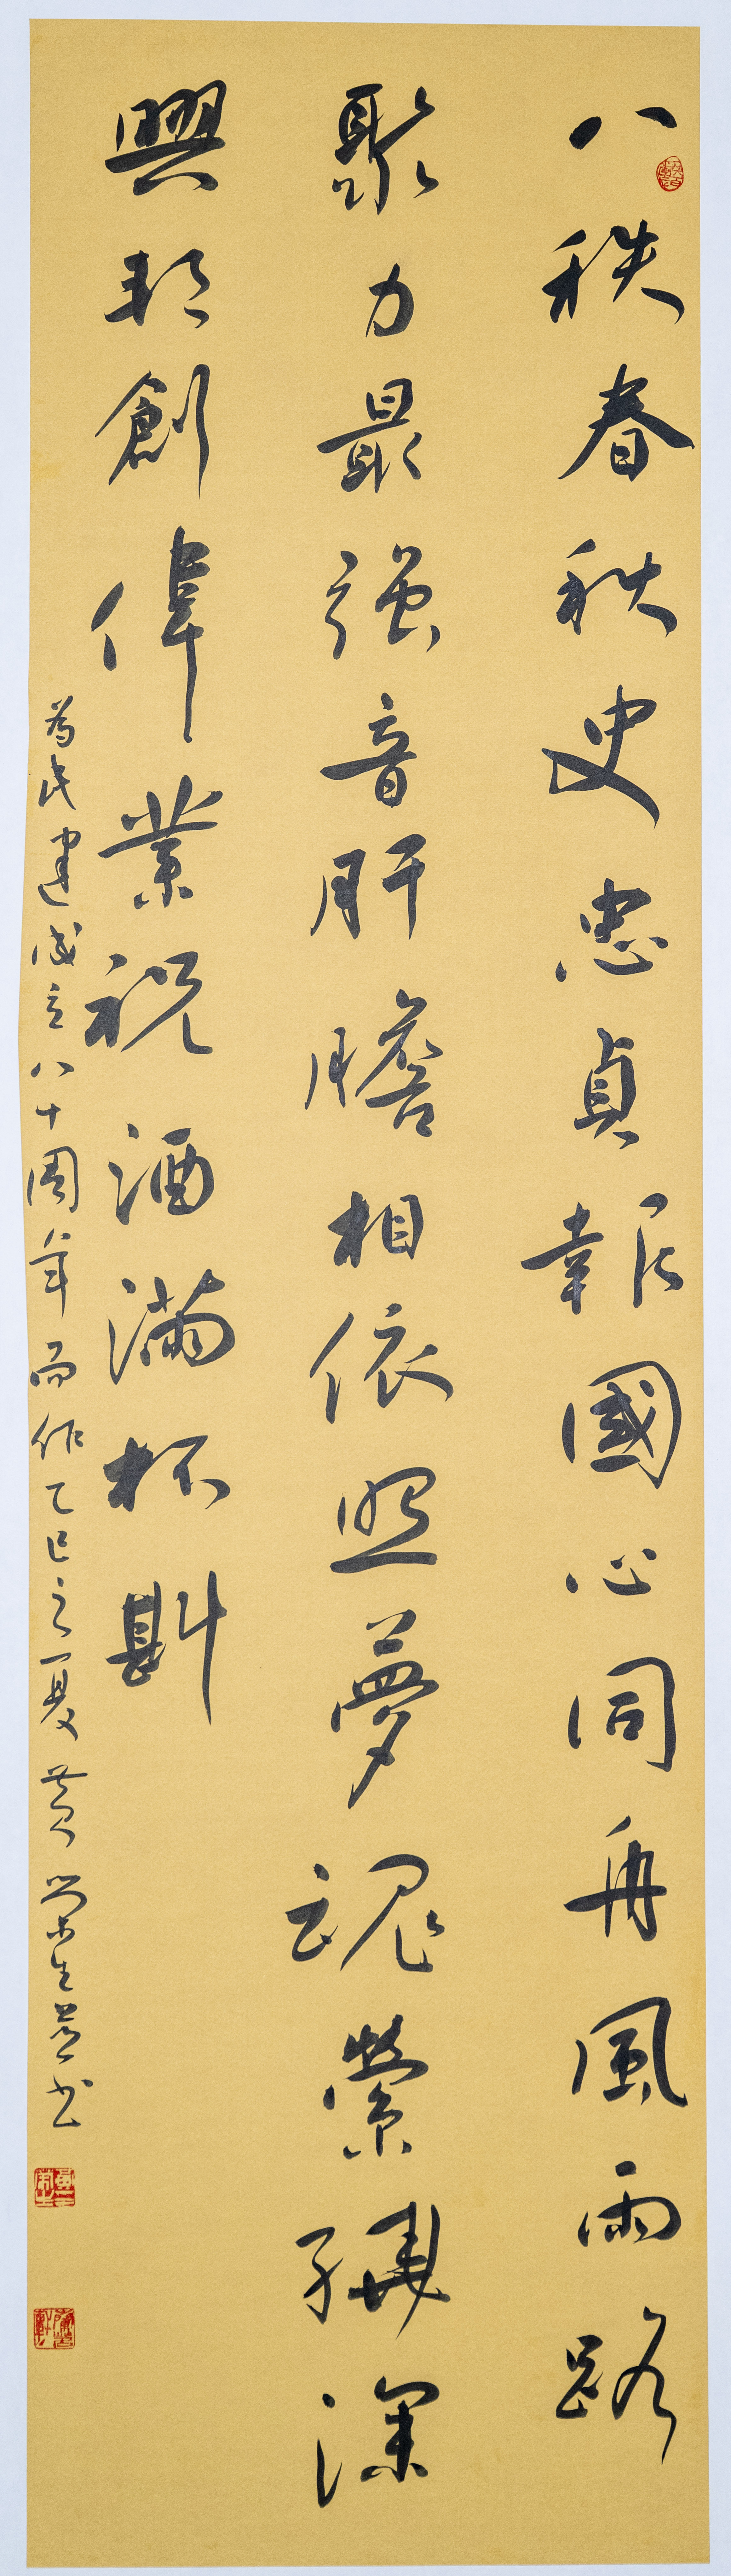 八秩春秋史忠貞報國心同舟風雨路
聚力最强音肝膽相依照夢魂縈繞深
興邦創偉業祝酒滿杯斟
為民建成立八十周年而作乙巳之夏黄榮生并書